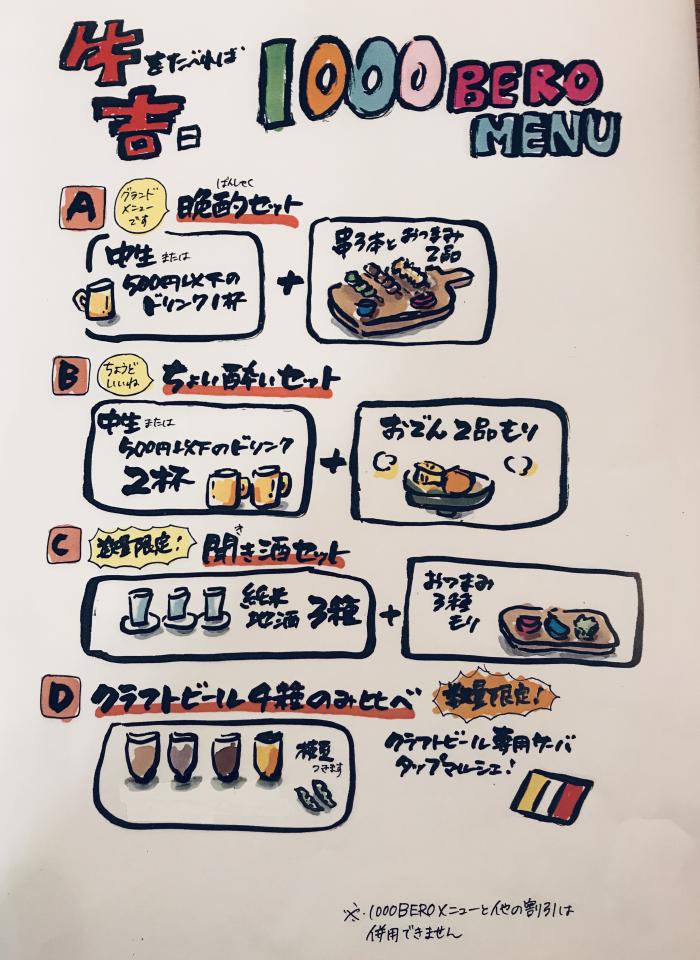 牛をたべれば
吉日
1000 BERO
MENU
A
グランド
メニュー
です
ばんしゃく
晩酌セット
中生 または
500円以下の
ドリンク1杯
+
串3本とおつまみ
2品
B
ちょうど
いいね
ちょい酔いセット
中生 または
500円以下のドリンク
2杯
+
おでん2品もり
C
数量限定!
き
聞き酒セット
純米
地酒 3種
+
おつまみ
3種
モリ
D
クラフトビール4種のみ比べ
数量限定!
枝豆
つきます
クラフトビール専用サーバ
タップマルシェ!
※・1000BEROメニューと他の割引は
併用できません